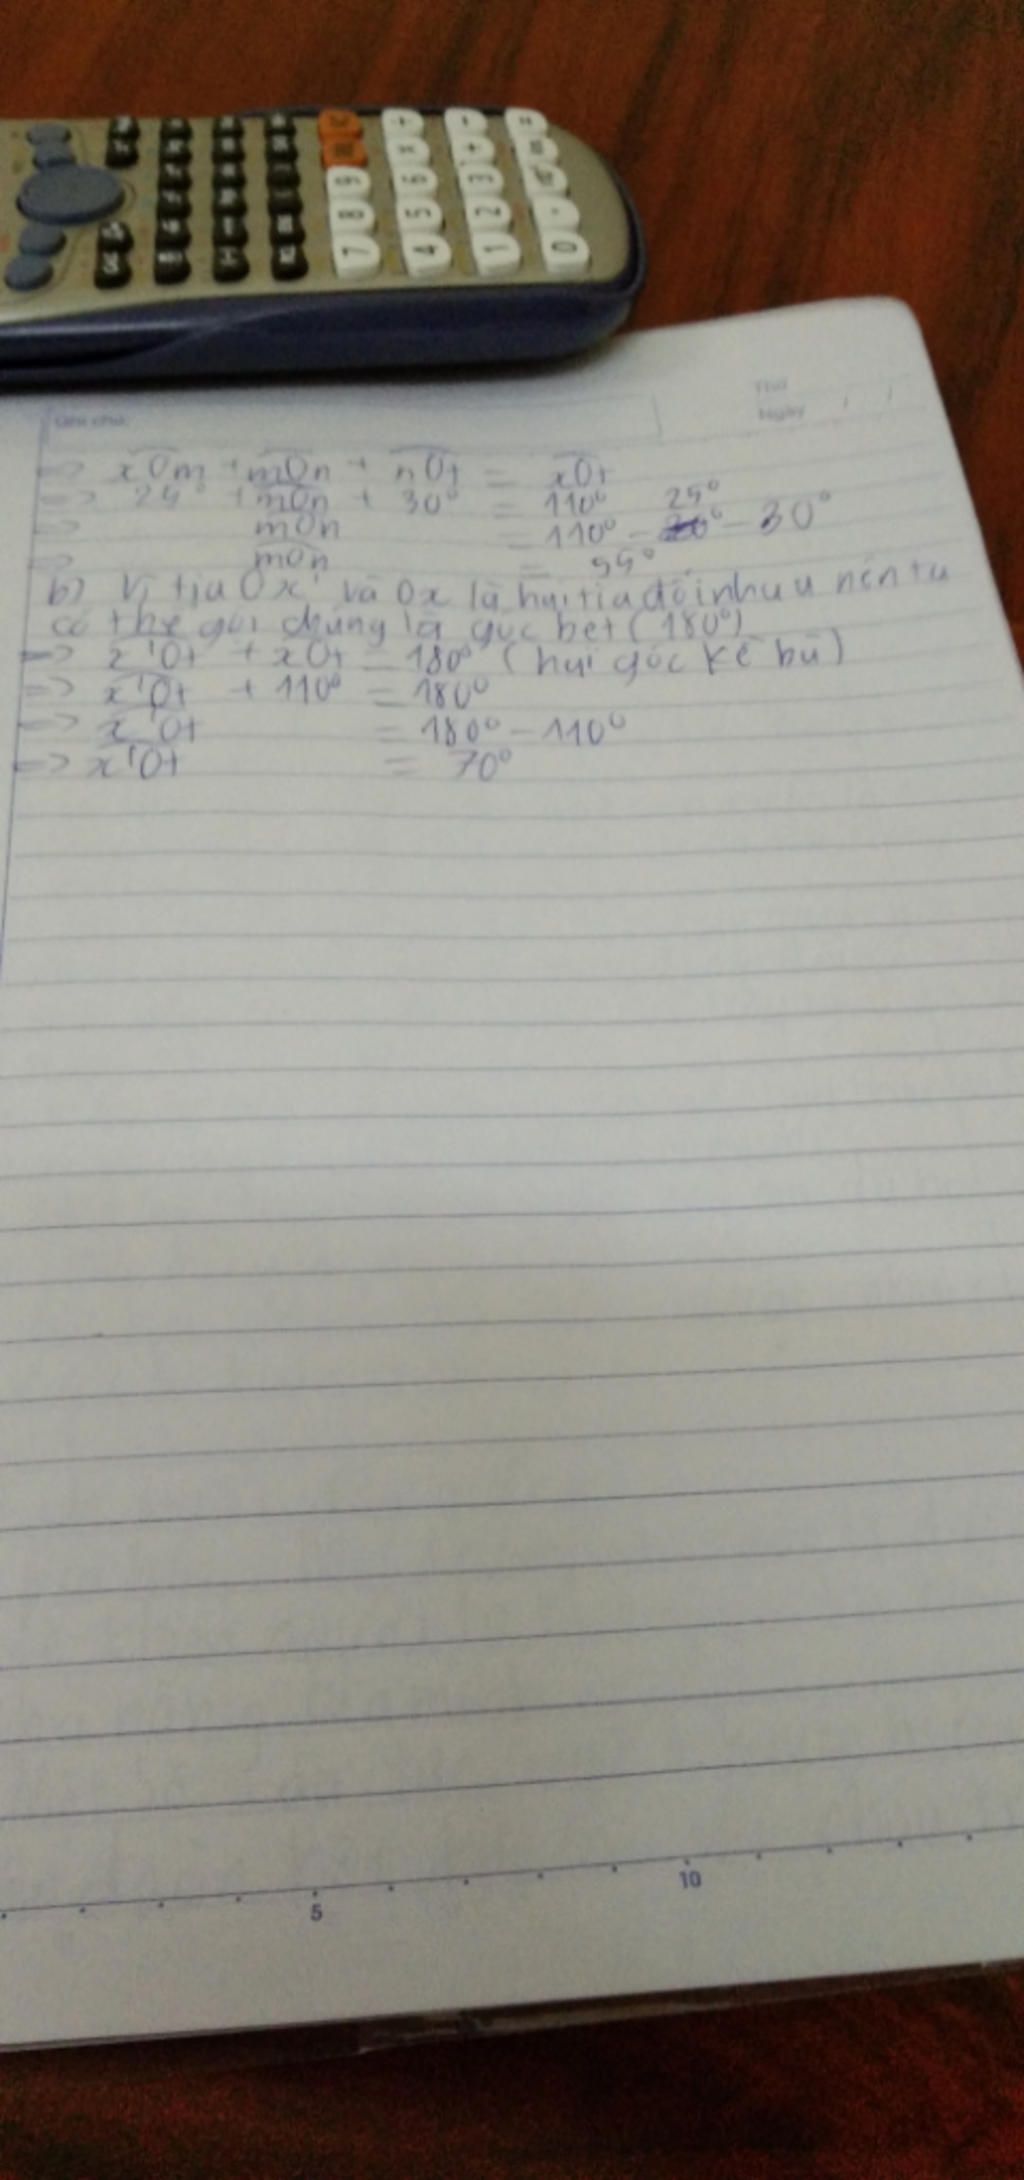 Ghi chú:
Thứ
Ngày / /
=> xOm + mOn + nOt = xOt
=> 25° + mOn + 30° = 110°
=> mOn = 110° - 25° - 30°
=> mOn = 55°
b) Vì tia Ox' và Ox là hai tia đối nhau nên ta
có thể gọi chúng là góc bẹt (180°)
=> x'Ot + xOt = 180° (hai góc kề bù)
=> x'Ot + 110° = 180°
=> x'Ot = 180° - 110°
=> x'Ot = 70°
5 10
7 8 9
4 5 6 × ÷
1 2 3 + -
0 . =